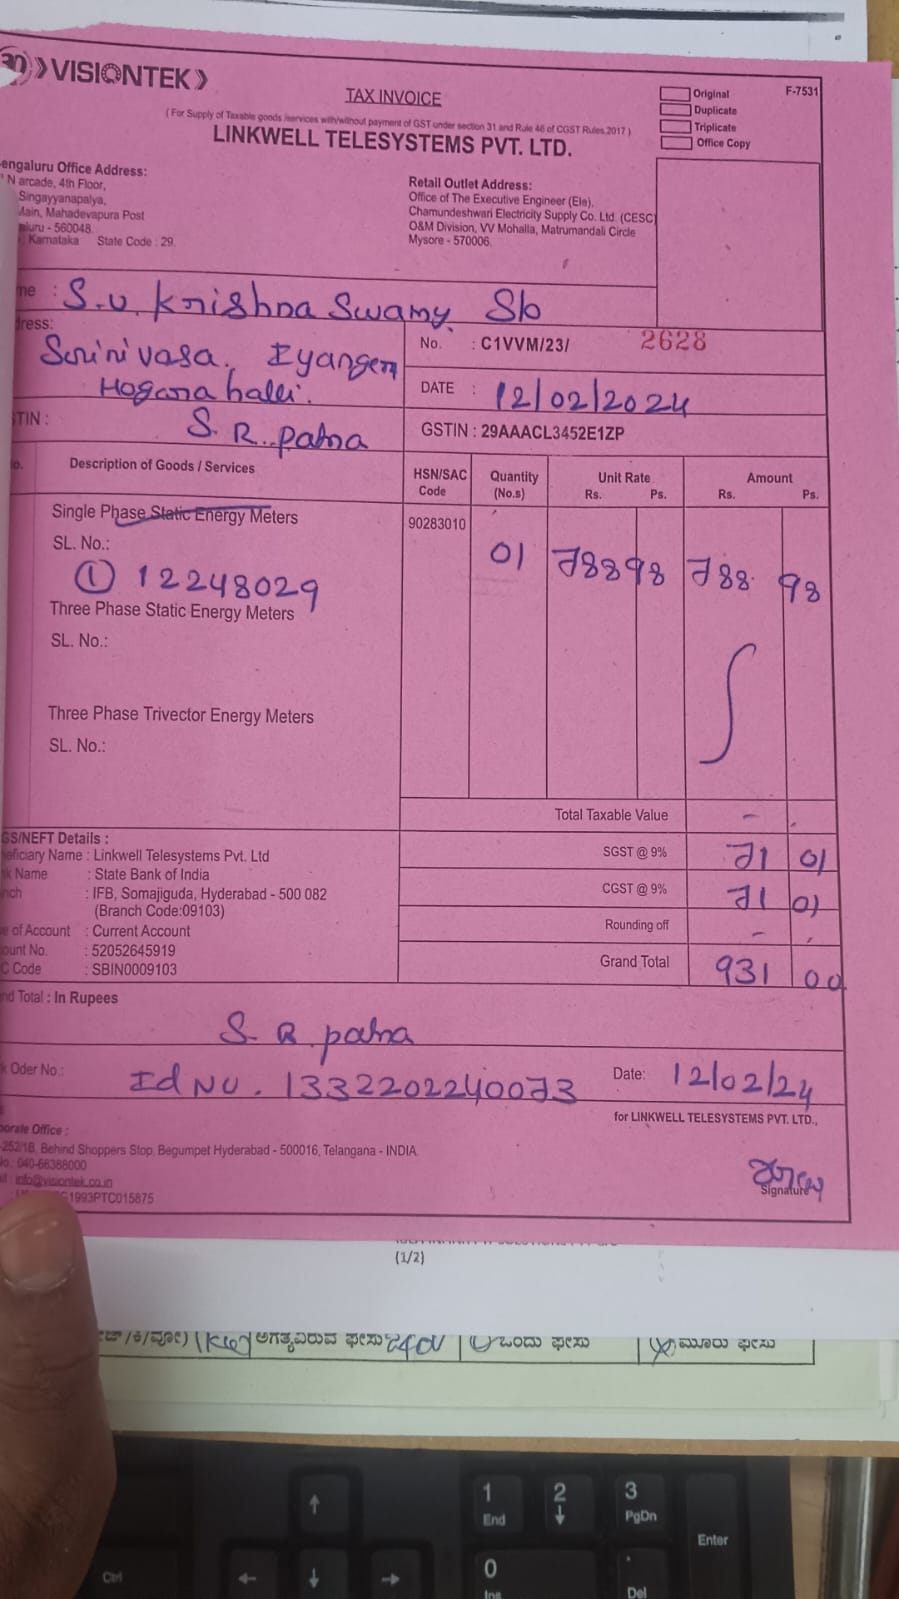 VISIONTEK
TAX INVOICE
Original
F-7531
Duplicate
Triplicate
Office Copy
( For Supply of Taxable goods /services with/without payment of GST under section 31 and Rule 46 of CGST Rules,2017 )
LINKWELL TELESYSTEMS PVT. LTD.
engaluru Office Address:
N arcade, 4th Floor,
Singayyanapalya,
Main, Mahadevapura Post
aluru - 560048.
Karnataka State Code : 29.
Retail Outlet Address:
Office of The Executive Engineer (Ele),
Chamundeshwari Electricity Supply Co. Ltd. (CESC)
O&M Division, VV Mohalla, Matrumandali Circle
Mysore - 570006.
me : S.V. Krishna Swamy S/o
dress:
Srinivasa. Iyanger
Hogarahalli.
S. R. patna
No. : C1VVM/23/ 2628
DATE : 12/02/2024
STIN :
GSTIN : 29AAACL3452E1ZP
o. Description of Goods / Services HSN/SAC Code Quantity (No.s) Unit Rate Rs. Ps. Amount Rs. Ps.
Single Phase Static Energy Meters 90283010
SL. No.:
01 788 98 788 98
① 12248029
Three Phase Static Energy Meters
SL. No.:
Three Phase Trivector Energy Meters
SL. No.:
Total Taxable Value -
GS/NEFT Details :
eficiary Name : Linkwell Telesystems Pvt. Ltd
k Name : State Bank of India
nch : IFB, Somajiguda, Hyderabad - 500 082
(Branch Code:09103)
e of Account : Current Account
ount No. : 52052645919
C Code : SBIN0009103
SGST @ 9% 71 01
CGST @ 9% 71 01
Rounding off -
Grand Total 931 00
nd Total : In Rupees
S. R. patna
k Oder No.: Id No. 1332202240073
Date: 12/02/24
for LINKWELL TELESYSTEMS PVT. LTD.,
porate Office :
-252/1B, Behind Shoppers Stop, Begumpet Hyderabad - 500016, Telangana - INDIA.
No.: 040-66388000
il : info@visiontek.co.in
G1993PTC015875
Signature
(1/2)
ಅಗತ್ಯವಿರುವ ಫೇಸು ಒಂದು ಫೇಸು ಮೂರು ಫೇಸು
1 End
2
3 PgDn
Enter
Ctrl
0 Ins
. Del